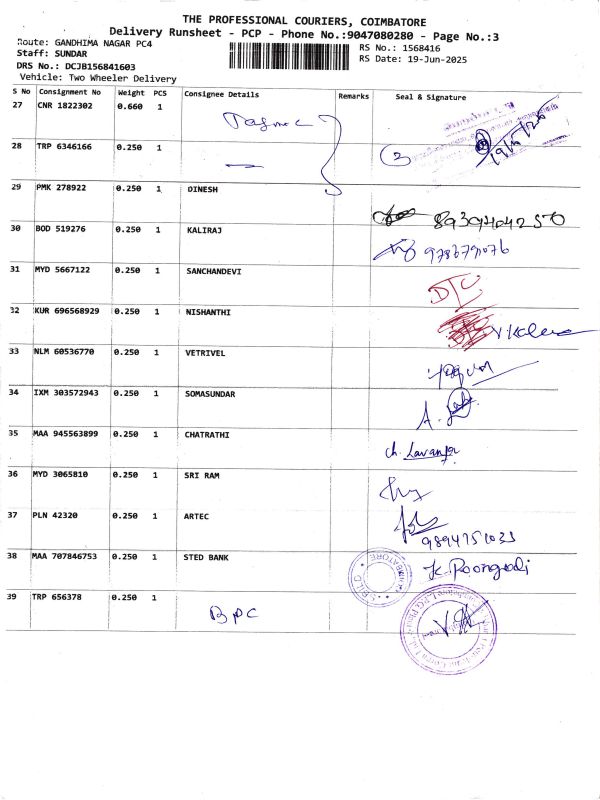 THE PROFESSIONAL COURIERS, COIMBATORE
Delivery Runsheet - PCP - Phone No.:9047080280 - Page No.:3
Route: GANDHIMA NAGAR PC4
Staff: SUNDAR
DRS No.: DCJB156841603
Vehicle: Two Wheeler Delivery
RS No.: 1568416
RS Date: 19-Jun-2025
S No Consignment No Weight PCS Consignee Details Remarks Seal & Signature
27 CNR 1822302 0.660 1
28 TRP 6346166 0.250 1
29 PMK 278922 0.250 1 DINESH
30 BOD 519276 0.250 1 KALIRAJ
31 MYD 5667122 0.250 1 SANCHANDEVI
32 KUR 696568929 0.250 1 NISHANTHI
33 NLM 60536770 0.250 1 VETRIVEL
34 IXM 303572943 0.250 1 SOMASUNDAR
35 MAA 945563899 0.250 1 CHATRATHI ch. Lavanya
36 MYD 3065810 0.250 1 SRI RAM
37 PLN 42320 0.250 1 ARTEC 9894751033
38 MAA 707846753 0.250 1 STED BANK K. Poongodi
39 TRP 656378 0.250 1 BPC